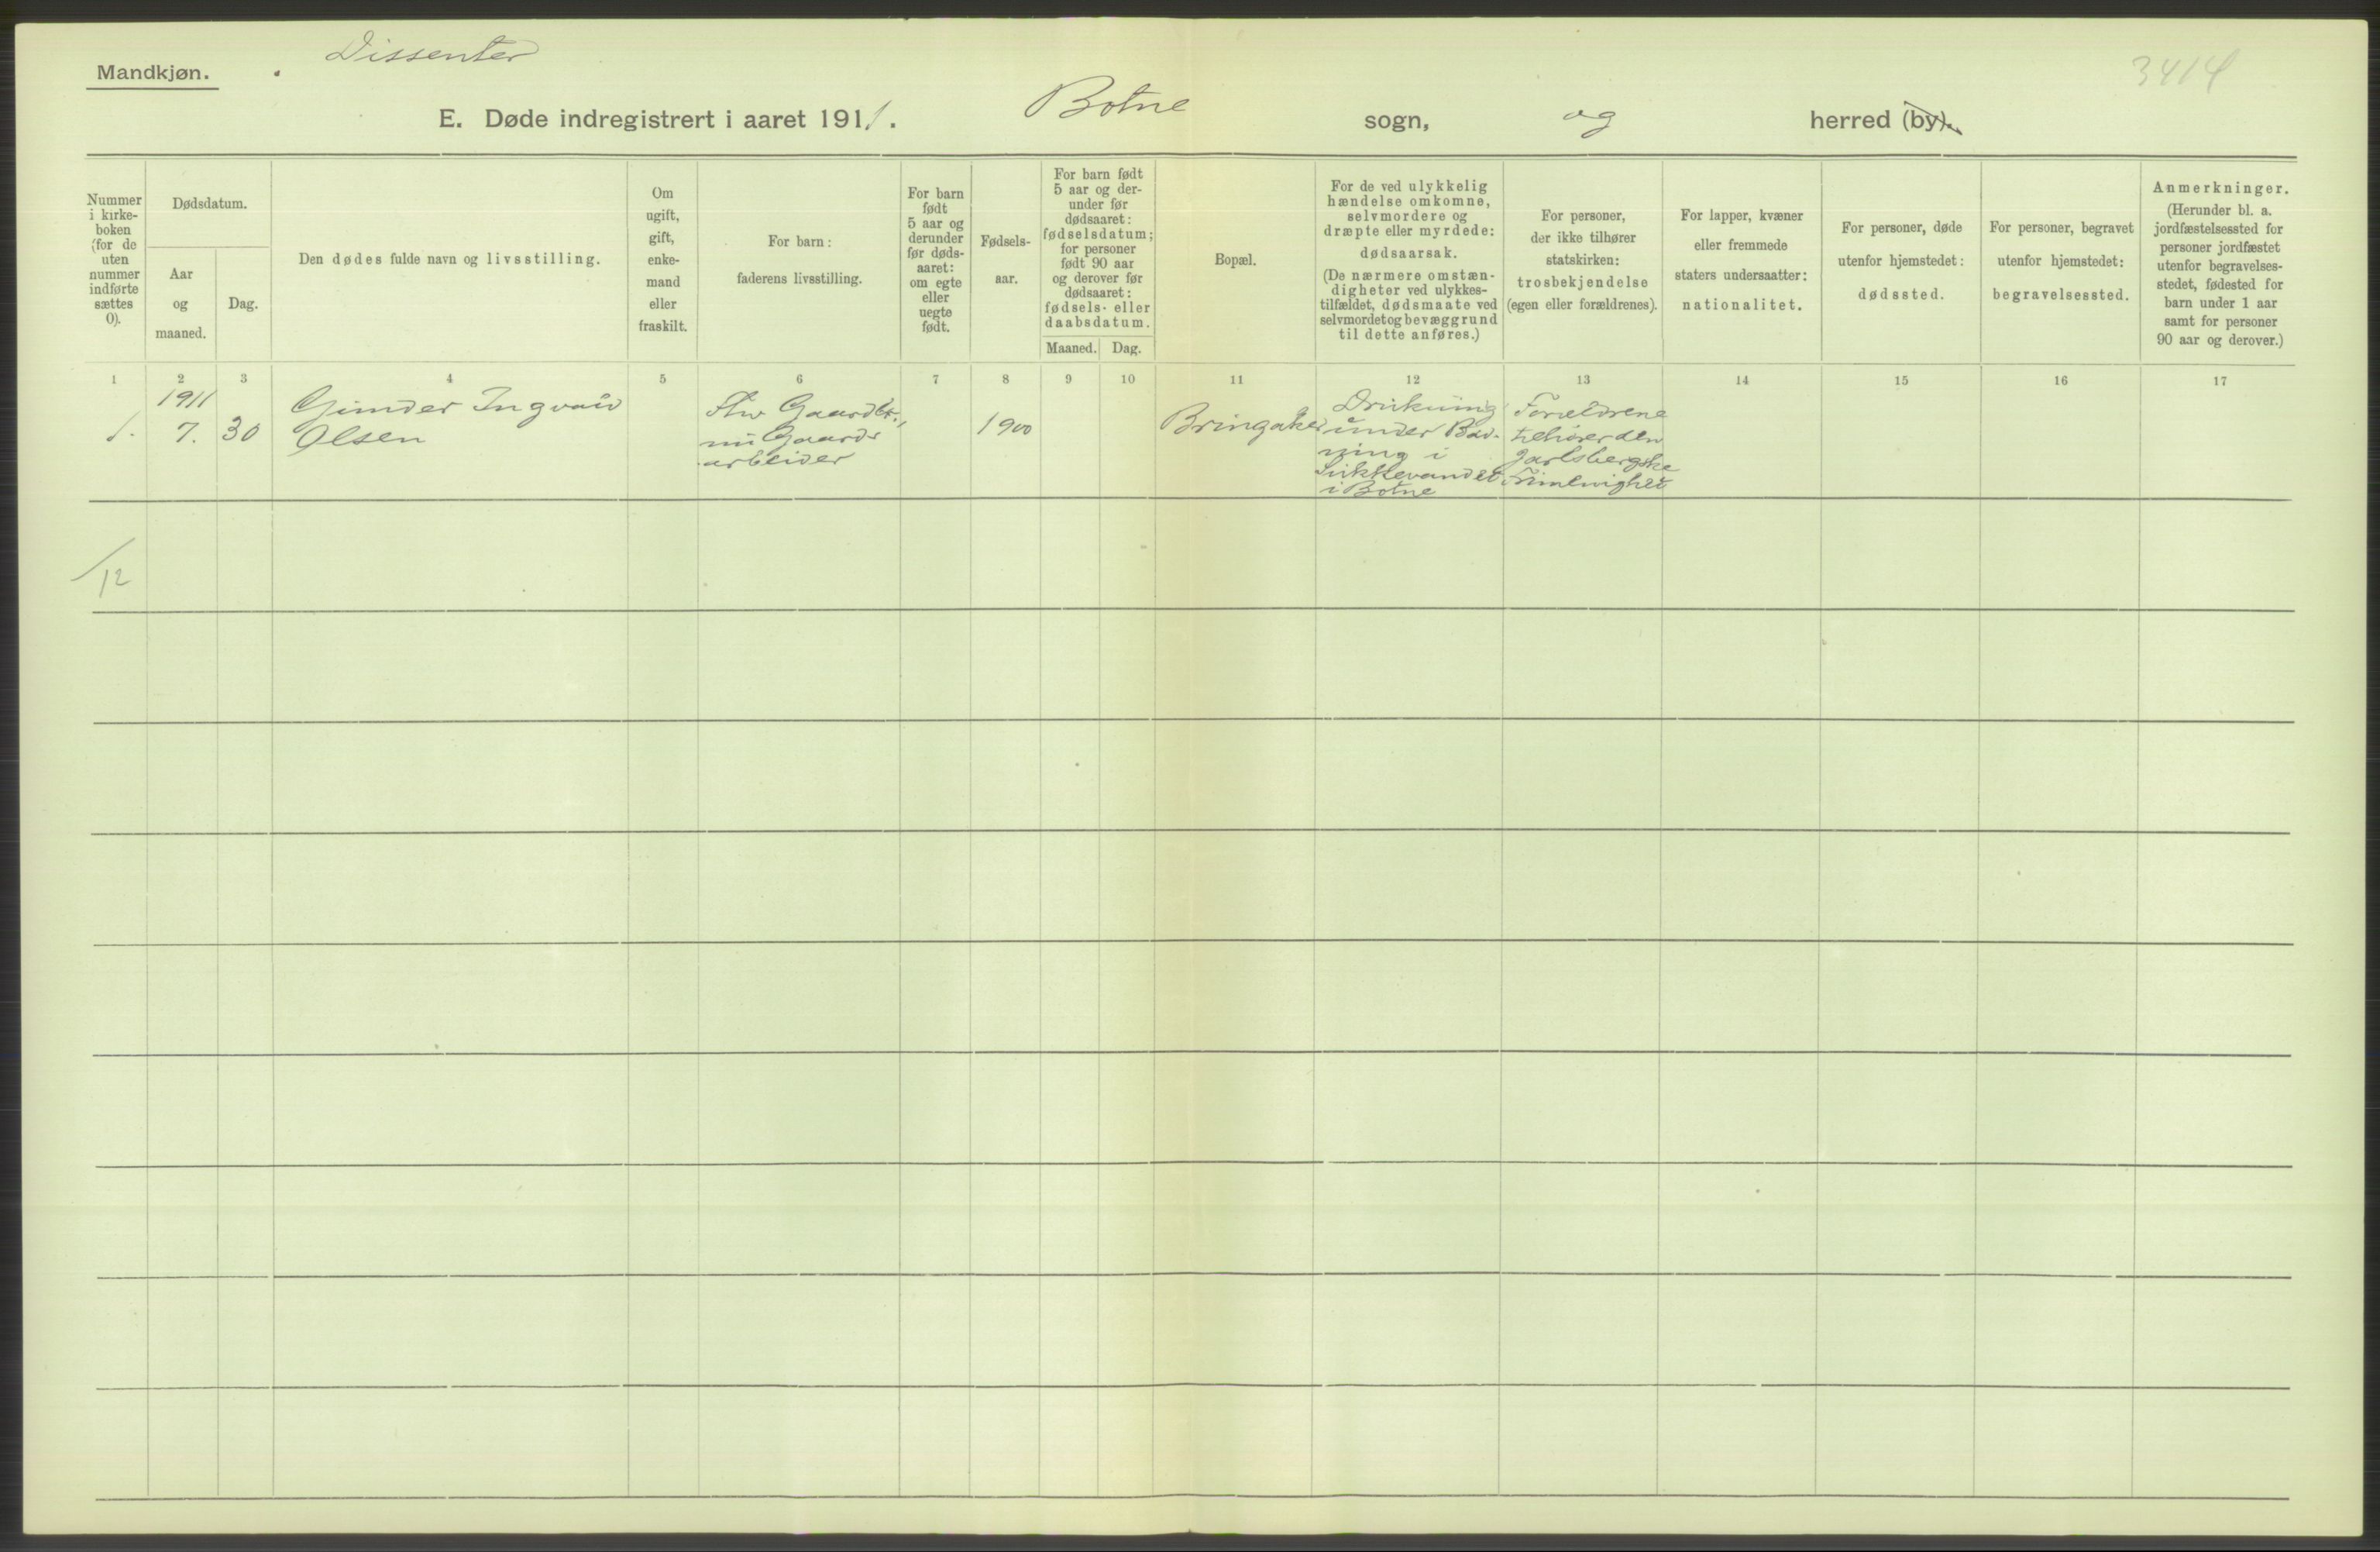 Dissenter
Mandkjøn.
3414
E. Døde indregistrert i aaret 1911. Botne sogn, og herred (by).
Nummer
i kirke-
boken
(for de
uten
nummer
indførte
sættes
0).
Dødsdatum.
Aar
og
maaned.
Dag.
Den dødes fulde navn og livsstilling.
Om
ugift,
gift,
enke-
mand
eller
fraskilt.
For barn:
faderens livsstilling.
For barn
født
5 aar og
derunder
før døds-
aaret:
om egte
eller
uegte
født.
Fødsels-
aar.
For barn født
5 aar og der-
under før
dødsaaret:
fødselsdatum;
for personer
født 90 aar
og derover før
dødsaaret:
fødsels- eller
daabsdatum.
Maaned. Dag.
Bopæl.
For de ved ulykkelig
hændelse omkomne,
selvmordere og
dræpte eller myrdede:
dødsaarsak.
(De nærmere omstæn-
digheter ved ulykkes-
tilfældet, dødsmaate ved
selvmordet og bevæggrund
til dette anføres.)
For personer,
der ikke tilhører
statskirken:
trosbekjendelse
(egen eller forældrenes).
For lapper, kvæner
eller fremmede
staters undersaatter:
nationalitet.
For personer, døde
utenfor hjemstedet:
dødssted.
For personer, begravet
utenfor hjemstedet:
begravelsessted.
Anmerkninger.
(Herunder bl. a.
jordfæstelsessted for
personer jordfæstet
utenfor begravelses-
stedet, fødested for
barn under 1 aar
samt for personer
90 aar og derover.)
1 2 3 4 5 6 7 8 9 10 11 12 13 14 15 16 17
1.
1911
7.
30
Ingvald
Olsen
Gaardbr.,
nu Gaards
arbeider
1900
Bringaker
Drukning
under Bad-
ning i
i Botne
Forældrene
tilhører den
Jarlsbergske
Frimenighet
12